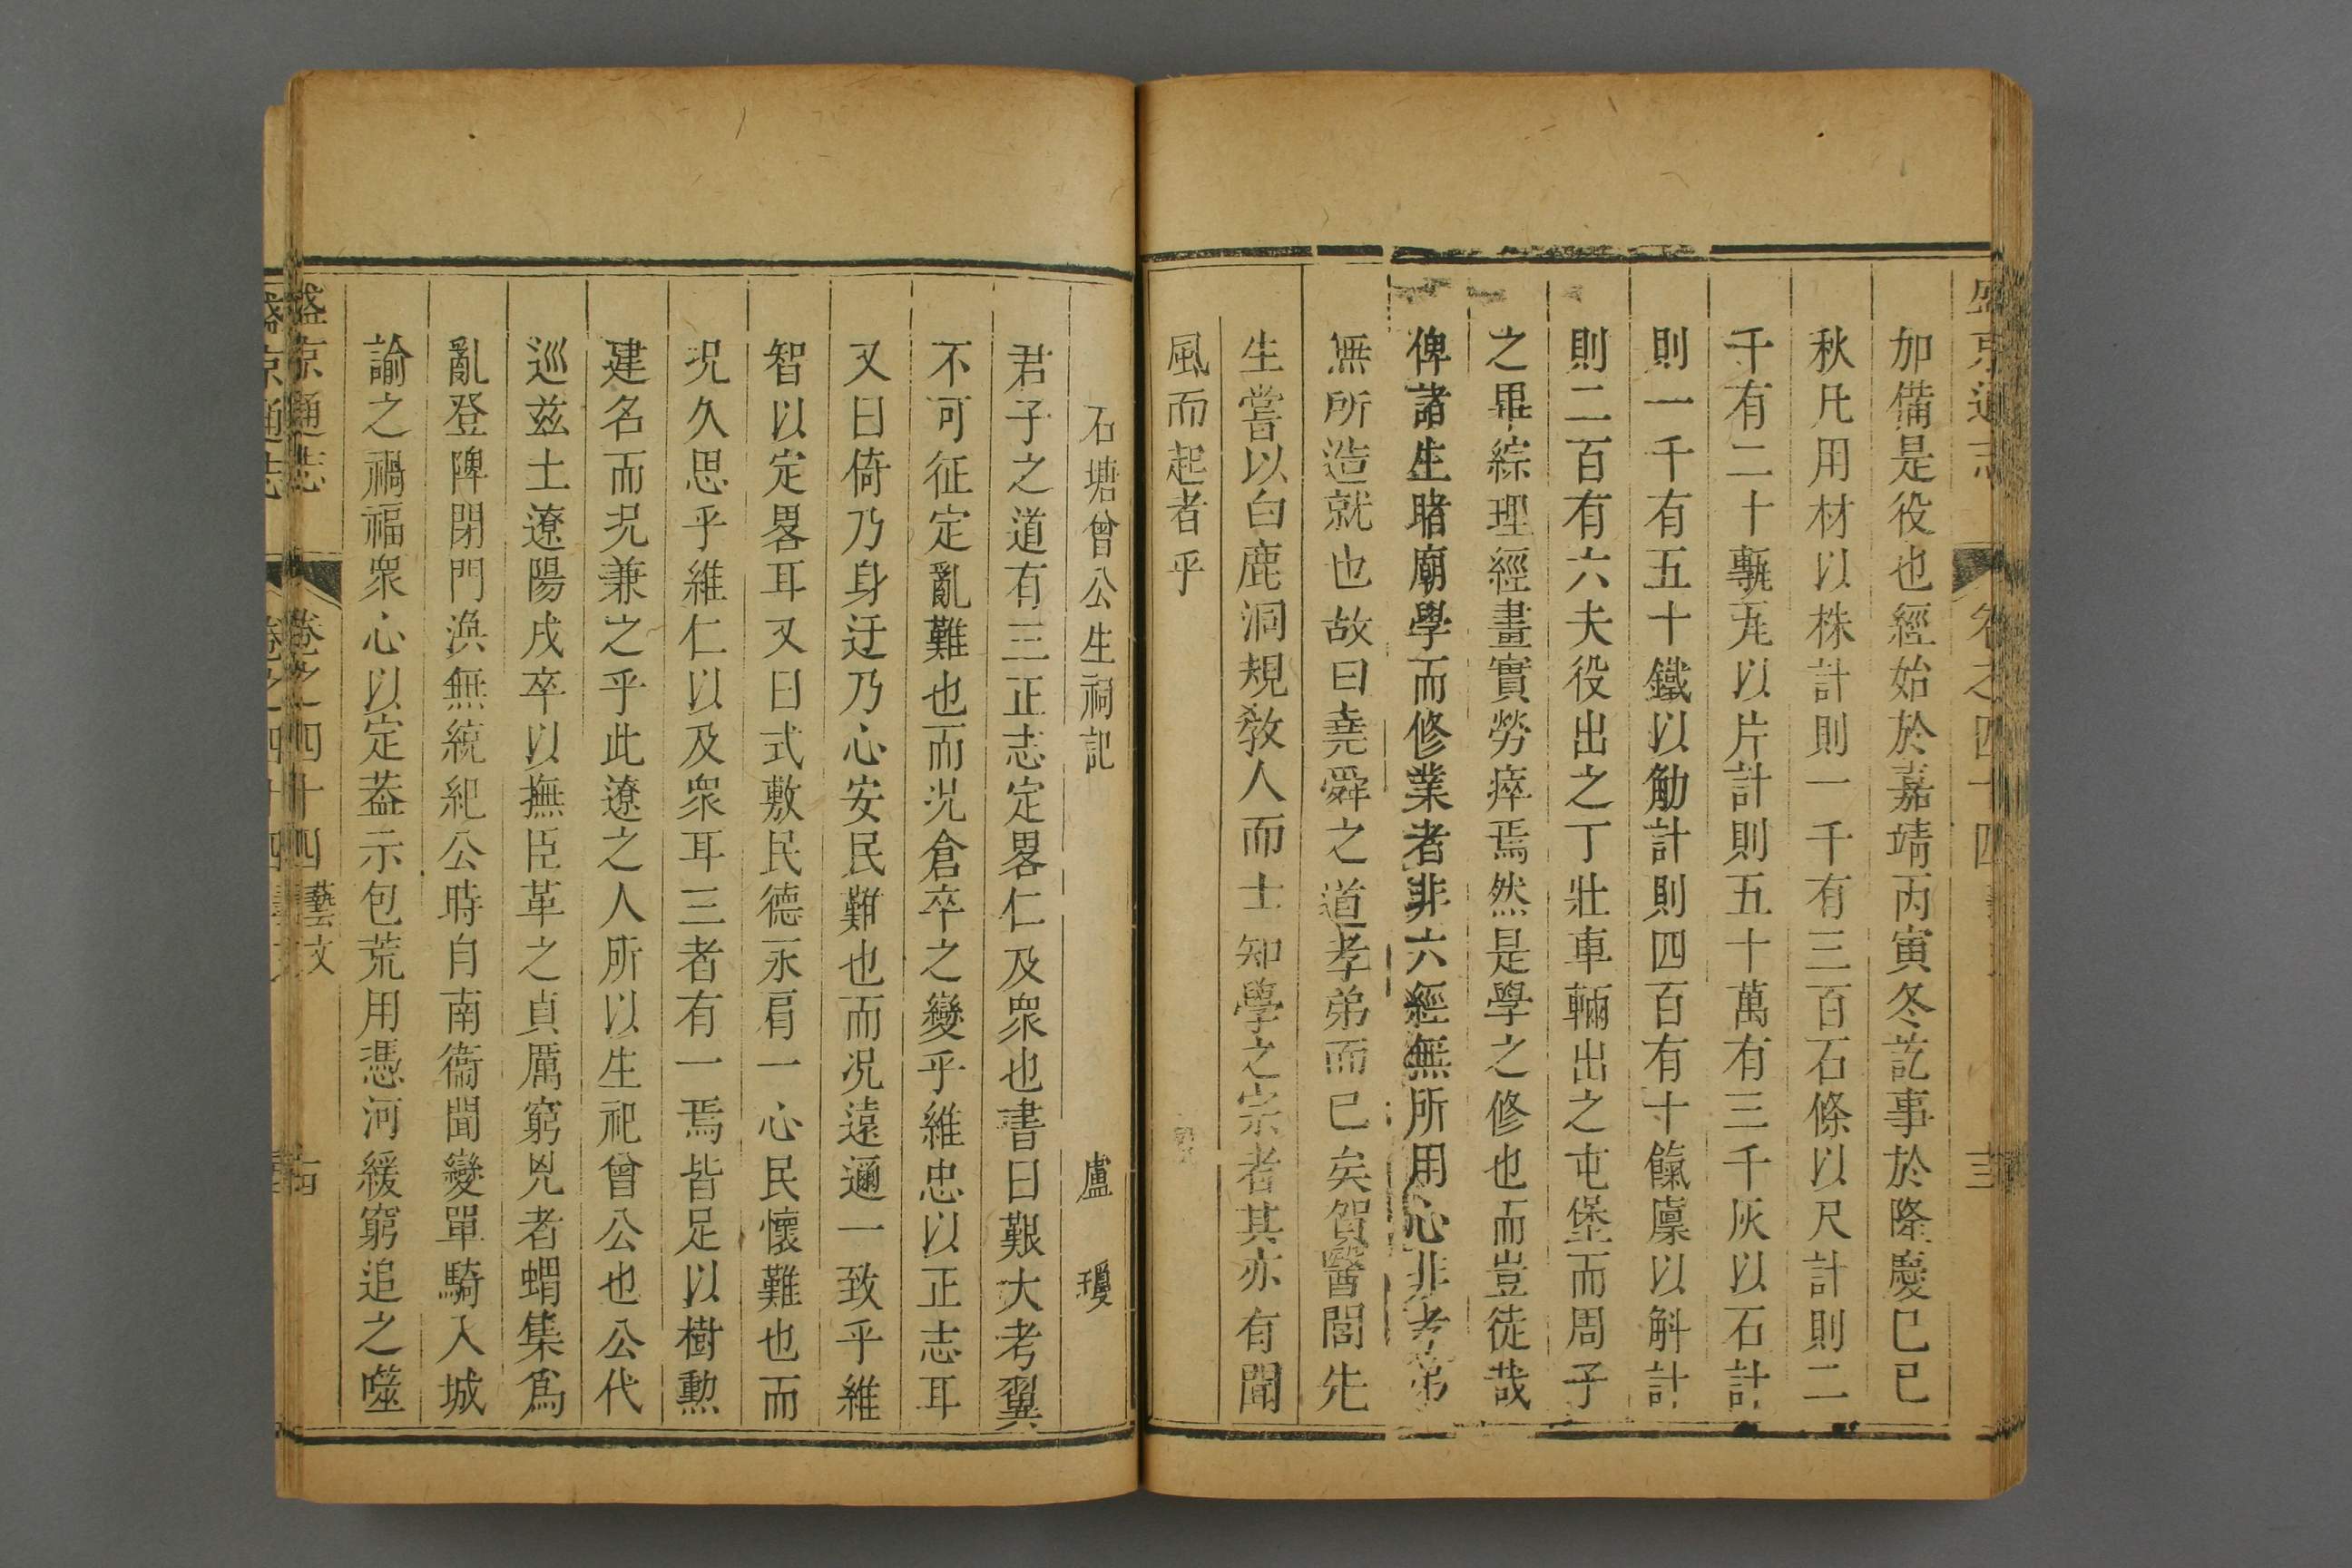 盛京通志 卷之四十四 十三
加備是役也經始於嘉靖丙寅冬訖事於隆慶己巳
秋凡用材以株計則一千有三百石條以尺計則二
千有二十甎瓦以片計則五十萬有三千灰以石計
則一千有五十鐵以觔計則四百有十餼廩以斛計
則二百有六夫役出之丁壯車輛出之屯堡而周子
之畢綜理經畫實勞瘁焉然是學之修也而豈徒哉
俾諸生睹廟學而修業者非六經無所用心非孝弟
無所造就也故曰堯舜之道孝弟而已矣賀醫閭先
生嘗以白鹿洞規敎人而士知學之宗者其亦有聞
風而起者乎
石塘曾公生祠記 盧瓊
君子之道有三正志定畧仁及眾也書曰艱大考翼
不可征定亂難也而況倉卒之變乎維忠以正志耳
又曰倚乃身迂乃心安民難也而况遠邇一致乎維
智以定畧耳又曰式敷民德永肩一心民懷難也而
况久思乎維仁以及眾耳三者有一焉皆足以樹勲
建名而况兼之乎此遼之人所以生祀曾公也公代
巡兹土遼陽戍卒以撫臣革之貞厲窮兇者蝟集爲
亂登陴閉門渙無統紀公時自南衞聞變單騎入城
諭之禍福眾心以定蓋示包荒用馮河緩窮追之噬
盛京通志 卷之四十四 藝文 十四
盛京通志 卷之四十四